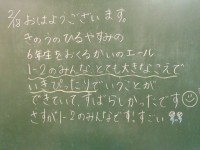 3/2 おはようございます。
きのうのひるやすみの
6年生をおくるかいのエール
1-2のみんな とても大きなこえで
いきぴったりでいうことが
できていて、すばらしかったです
さすが1-2のみんなです！すごい